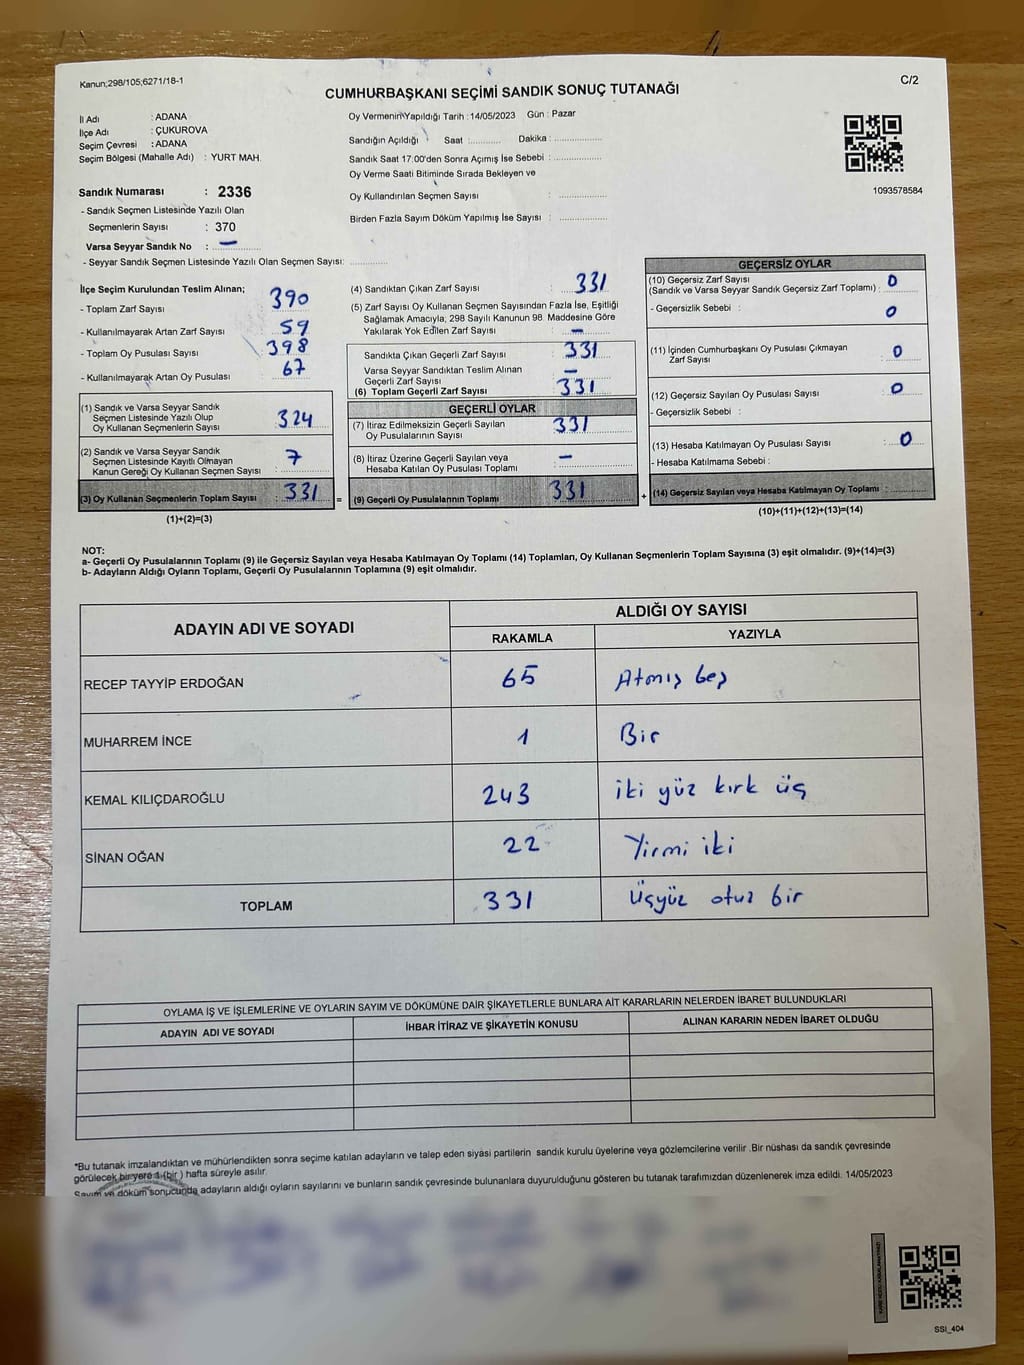 Kanun;298/105;6271/18-1
C/2
CUMHURBAŞKANI SEÇİMİ SANDIK SONUÇ TUTANAĞI
İl Adı : ADANA
İlçe Adı : ÇUKUROVA
Seçim Çevresi : ADANA
Seçim Bölgesi (Mahalle Adı) : YURT MAH.
Sandık Numarası : 2336
- Sandık Seçmen Listesinde Yazılı Olan
Seçmenlerin Sayısı : 370
Varsa Seyyar Sandık No : —
- Seyyar Sandık Seçmen Listesinde Yazılı Olan Seçmen Sayısı:
Oy Vermenin Yapıldığı Tarih : 14/05/2023 Gün : Pazar
Sandığın Açıldığı Saat : Dakika :
Sandık Saat 17.00'den Sonra Açımış İse Sebebi :
Oy Verme Saati Bitiminde Sırada Bekleyen ve
Oy Kullandırılan Seçmen Sayısı :
Birden Fazla Sayım Döküm Yapılmış İse Sayısı :
1093578584
İlçe Seçim Kurulundan Teslim Alınan;
- Toplam Zarf Sayısı : 390
- Kullanılmayarak Artan Zarf Sayısı : 59
- Toplam Oy Pusulası Sayısı : 398
- Kullanılmayarak Artan Oy Pusulası : 67
(1) Sandık ve Varsa Seyyar Sandık
Seçmen Listesinde Yazılı Olup
Oy Kullanan Seçmenlerin Sayısı : 324
(2) Sandık ve Varsa Seyyar Sandık
Seçmen Listesinde Kayıtlı Olmayan
Kanun Gereği Oy Kullanan Seçmen Sayısı : 7
(3) Oy Kullanan Seçmenlerin Toplam Sayısı : 331 =
(1)+(2)=(3)
(4) Sandıktan Çıkan Zarf Sayısı : 331
(5) Zarf Sayısı Oy Kullanan Seçmen Sayısından Fazla İse, Eşitliği
Sağlamak Amacıyla; 298 Sayılı Kanunun 98. Maddesine Göre
Yakılarak Yok Edilen Zarf Sayısı : —
Sandıkta Çıkan Geçerli Zarf Sayısı : 331
Varsa Seyyar Sandıktan Teslim Alınan
Geçerli Zarf Sayısı : —
(6) Toplam Geçerli Zarf Sayısı : 331
GEÇERLİ OYLAR
(7) İtiraz Edilmeksizin Geçerli Sayılan
Oy Pusulalarının Sayısı : 331
(8) İtiraz Üzerine Geçerli Sayılan veya
Hesaba Katılan Oy Pusulası Toplamı : —
(9) Geçerli Oy Pusulalarının Toplamı : 331 +
GEÇERSİZ OYLAR
(10) Geçersiz Zarf Sayısı
(Sandık ve Varsa Seyyar Sandık Geçersiz Zarf Toplamı) : 0
- Geçersizlik Sebebi : 0
(11) İçinden Cumhurbaşkanı Oy Pusulası Çıkmayan
Zarf Sayısı : 0
(12) Geçersiz Sayılan Oy Pusulası Sayısı : 0
- Geçersizlik Sebebi :
(13) Hesaba Katılmayan Oy Pusulası Sayısı : 0
- Hesaba Katılmama Sebebi :
(14) Geçersiz Sayılan veya Hesaba Katılmayan Oy Toplamı :
(10)+(11)+(12)+(13)=(14)
NOT:
a- Geçerli Oy Pusulalarının Toplamı (9) ile Geçersiz Sayılan veya Hesaba Katılmayan Oy Toplamı (14) Toplamları, Oy Kullanan Seçmenlerin Toplam Sayısına (3) eşit olmalıdır. (9)+(14)=(3)
b- Adayların Aldığı Oyların Toplamı, Geçerli Oy Pusulalarının Toplamına (9) eşit olmalıdır.
ADAYIN ADI VE SOYADI ALDIĞI OY SAYISI
RAKAMLA YAZIYLA
RECEP TAYYİP ERDOĞAN 65 Atmış beş
MUHARREM İNCE 1 Bir
KEMAL KILIÇDAROĞLU 243 iki yüz kırk üç
SİNAN OĞAN 22 Yirmi iki
TOPLAM 331 Üçyüz otuz bir
OYLAMA İŞ VE İŞLEMLERİNE VE OYLARIN SAYIM VE DÖKÜMÜNE DAİR ŞİKAYETLERLE BUNLARA AİT KARARLARIN NELERDEN İBARET BULUNDUKLARI
ADAYIN ADI VE SOYADI İHBAR İTİRAZ VE ŞİKAYETİN KONUSU ALINAN KARARIN NEDEN İBARET OLDUĞU
*Bu tutanak imzalandıktan ve mühürlendikten sonra seçime katılan adayların ve talep eden siyasi partilerin sandık kurulu üyelerine veya gözlemcilerine verilir .Bir nüshası da sandık çevresinde
görülecek bir yere 1 (bir ) hafta süreyle asılır.
Sayım ve döküm sonucunda adayların aldığı oyların sayılarını ve bunların sandık çevresinde bulunanlara duyurulduğunu gösteren bu tutanak tarafımızdan düzenlenerek imza edildi. 14/05/2023
SSI_404